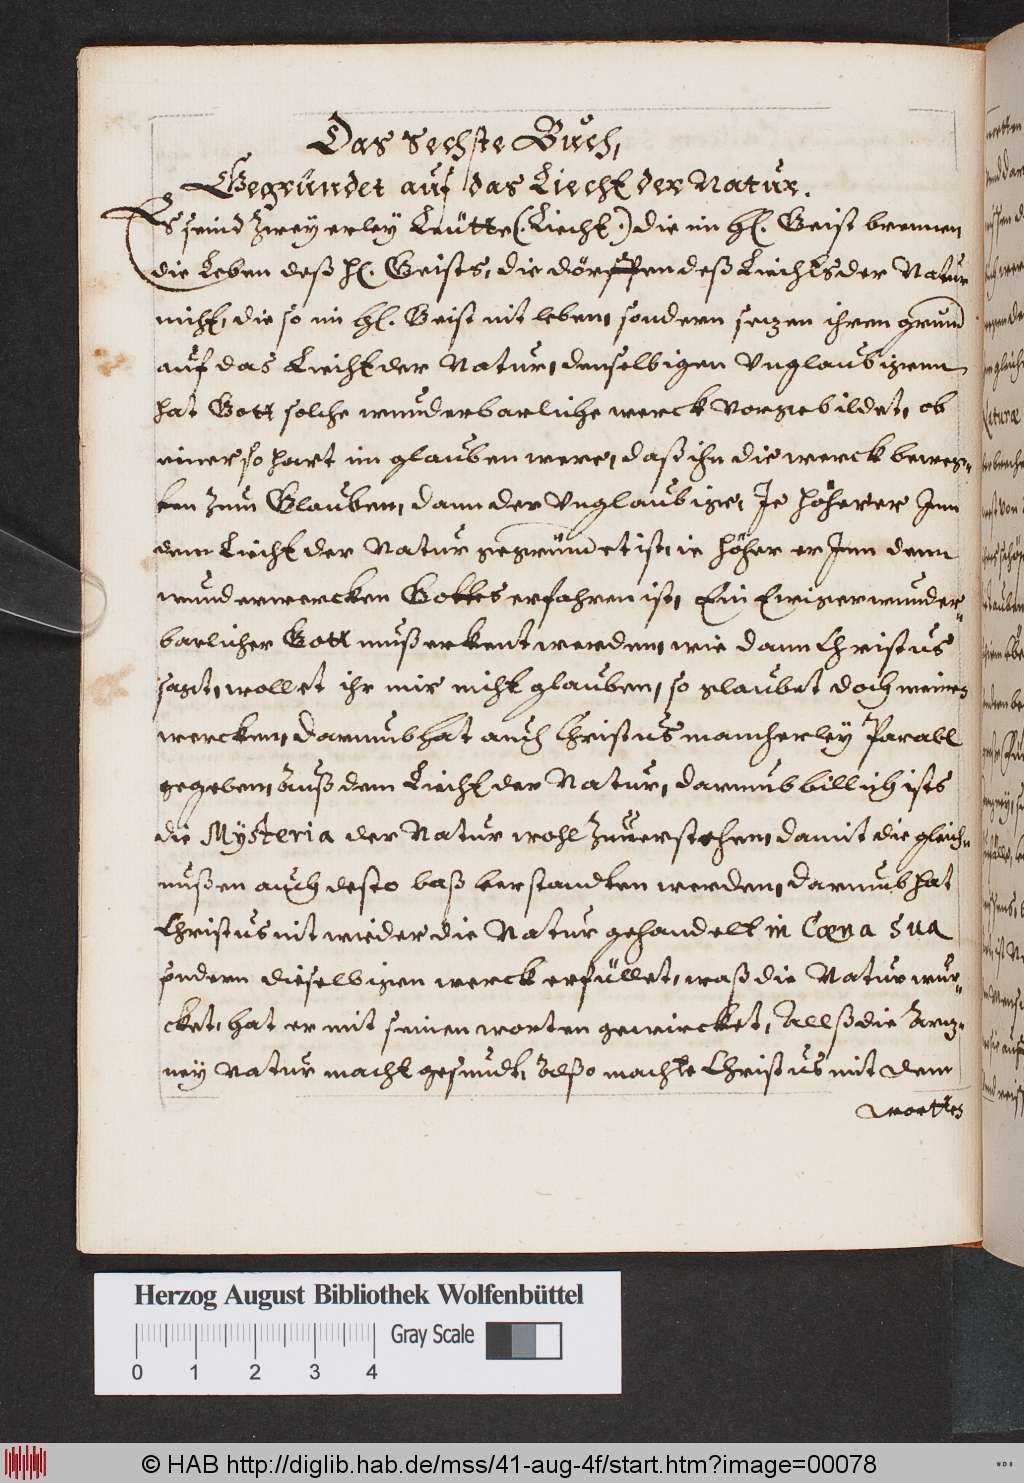 Das sechste Buch,
Gegründet auf das Liecht der Natur.
Es seind Zweyerley Leütte (. Liecht .) die im h. Geist brennen
die Leben deß H. Geists, die dörffen deß Liechts der Natur
nicht, die so im H. Geist nit leben, sondern sezen ihren grund
auf das Liecht der Natur, denselbigen Vnglaubigenn
hat Gott solche wunderbarliche werck vorgebildet, ob
einer so hart im glauben were, daß ihn die werck beweg-
ten zum Glauben, dann der Vnglaubige, Je höher er Inn
dem Liecht der Natur gegründet ist, ie höher er Inn denn
wunderwercken Gottes erfahren ist, Ein Ewiger wunder-
barlicher Gott muß erkent werden, wie dann Christus
sagt, wollet ihr mir nicht glauben, so glaubet doch meinen
wercken, darumb hat auch Christus mancherley Parabl
gegeben, auß dem Liecht der Natur, darumb billich ists
die Mysteria der Natur wohl zuuerstehen, damit die gleich-
nußen auch desto baß verstandten werden, darumb hat
Christus nit wieder die Natur gehandelt in Cœna Sua
sondern dieselbigen werck erfüllet, waß die Natur wür-
cket, hat er mit seinen worten gewircket, Allß die Arz-
ney Natur macht gesundt, Allso machte Christus mit dem
wortte
Herzog August Bibliothek Wolfenbüttel
Gray Scale
0 1 2 3 4
© HAB http://diglib.hab.de/mss/41-aug-4f/start.htm?image=00078